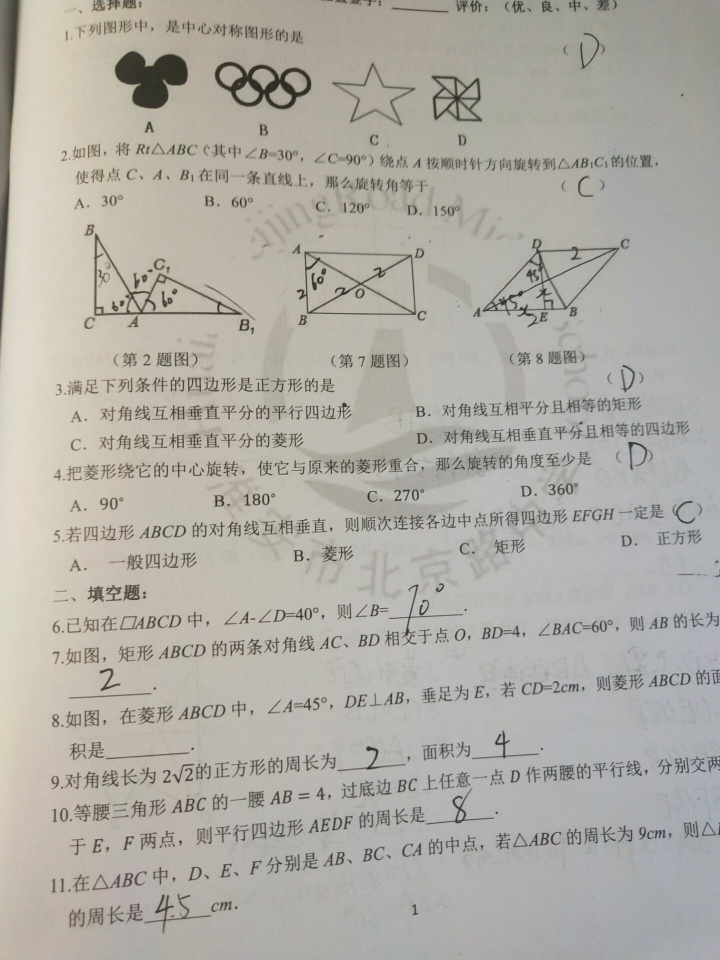 一、选择题：
评价：（优、良、中、差）
1.下列图形中，是中心对称图形的是 （ D ）
A B C D
2.如图，将 Rt△ABC（其中∠B=30°，∠C=90°）绕点 A 按顺时针方向旋转到△AB₁C₁的位置，
使得点 C、A、B₁在同一条直线上，那么旋转角等于 （ C ）
A．30° B．60° C．120° D．150°
B 30° C₁ 60° 60° 60° C A B₁
A D 60° 2 2 2 O B C
D C 2 45° 45° x x A 2 E B
（第 2 题图） （第 7 题图） （第 8 题图）
3.满足下列条件的四边形是正方形的是 （ D ）
A．对角线互相垂直平分的平行四边形 B．对角线互相平分且相等的矩形
C．对角线互相垂直平分的菱形 D．对角线互相垂直平分且相等的四边形
4.把菱形绕它的中心旋转，使它与原来的菱形重合，那么旋转的角度至少是 （ D ）
A．90° B．180° C．270° D．360°
5.若四边形 ABCD 的对角线互相垂直，则顺次连接各边中点所得四边形 EFGH 一定是（ C ）
A． 一般四边形 B．菱形 C． 矩形 D． 正方形
二、填空题：
6.已知在□ABCD 中，∠A-∠D=40°，则∠B= 70° .
7.如图，矩形 ABCD 的两条对角线 AC、BD 相交于点 O，BD=4，∠BAC=60°，则 AB 的长为
2 .
8.如图，在菱形 ABCD 中，∠A=45°，DE⊥AB，垂足为 E，若 CD=2cm，则菱形 ABCD 的面
积是________.
9.对角线长为 2√2的正方形的周长为 2 ，面积为 4 .
10.等腰三角形 ABC 的一腰 AB = 4，过底边 BC 上任意一点 D 作两腰的平行线，分别交两
于 E，F 两点，则平行四边形 AEDF 的周长是 8 .
11.在△ABC 中，D、E、F 分别是 AB、BC、CA 的中点，若△ABC 的周长为 9cm，则△
的周长是 4.5 cm.
1